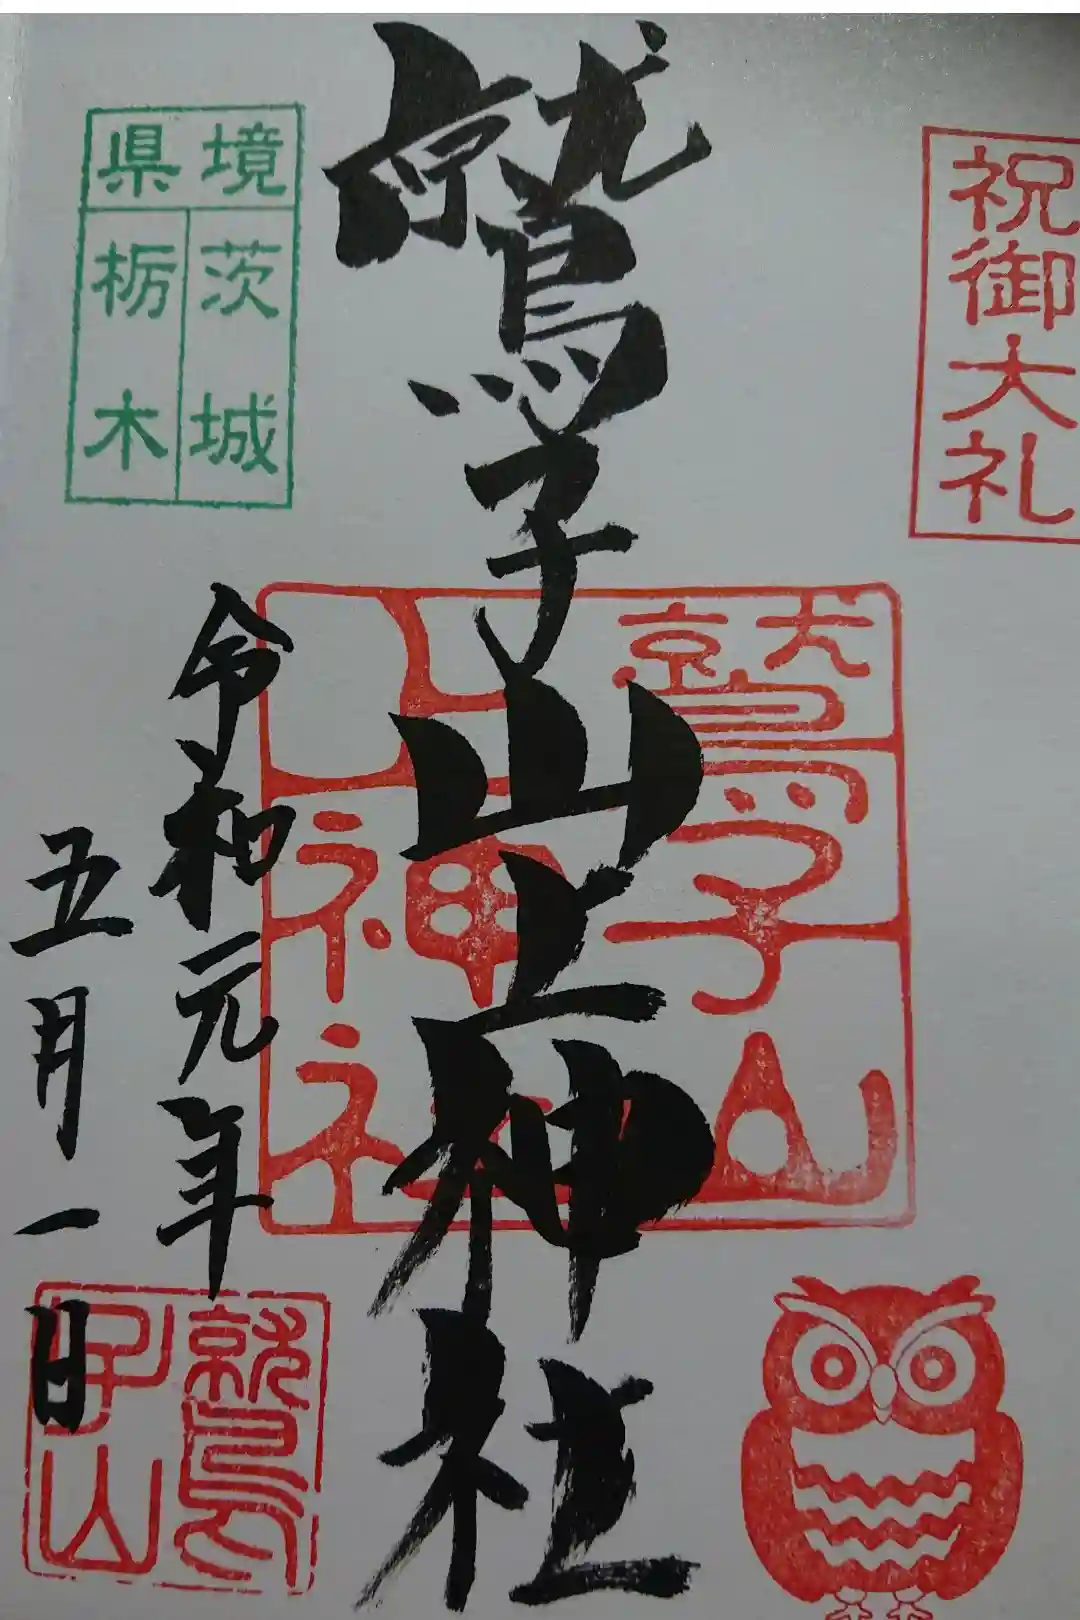 祝御大礼
鷲子山上神社
令和元年
五月一日
県境
茨城
栃木
鷲子山
上神社
鷲
子山